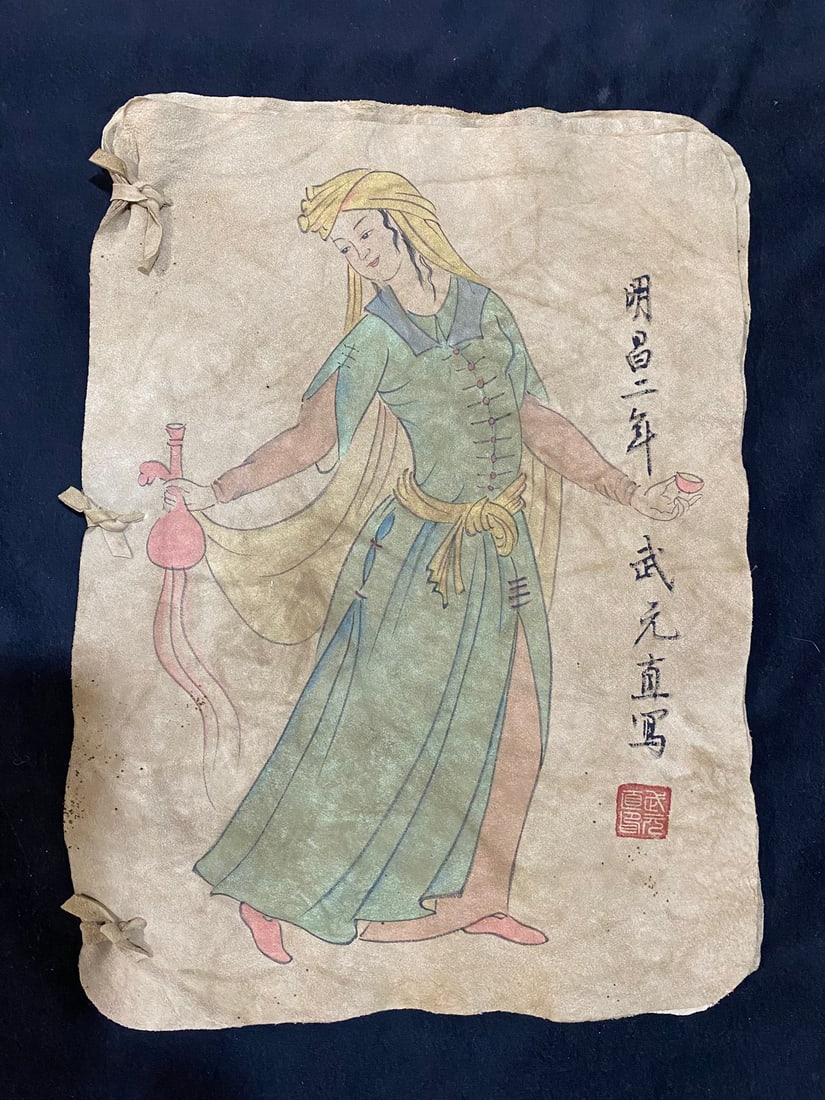 明昌二年 武元直写
武元直印